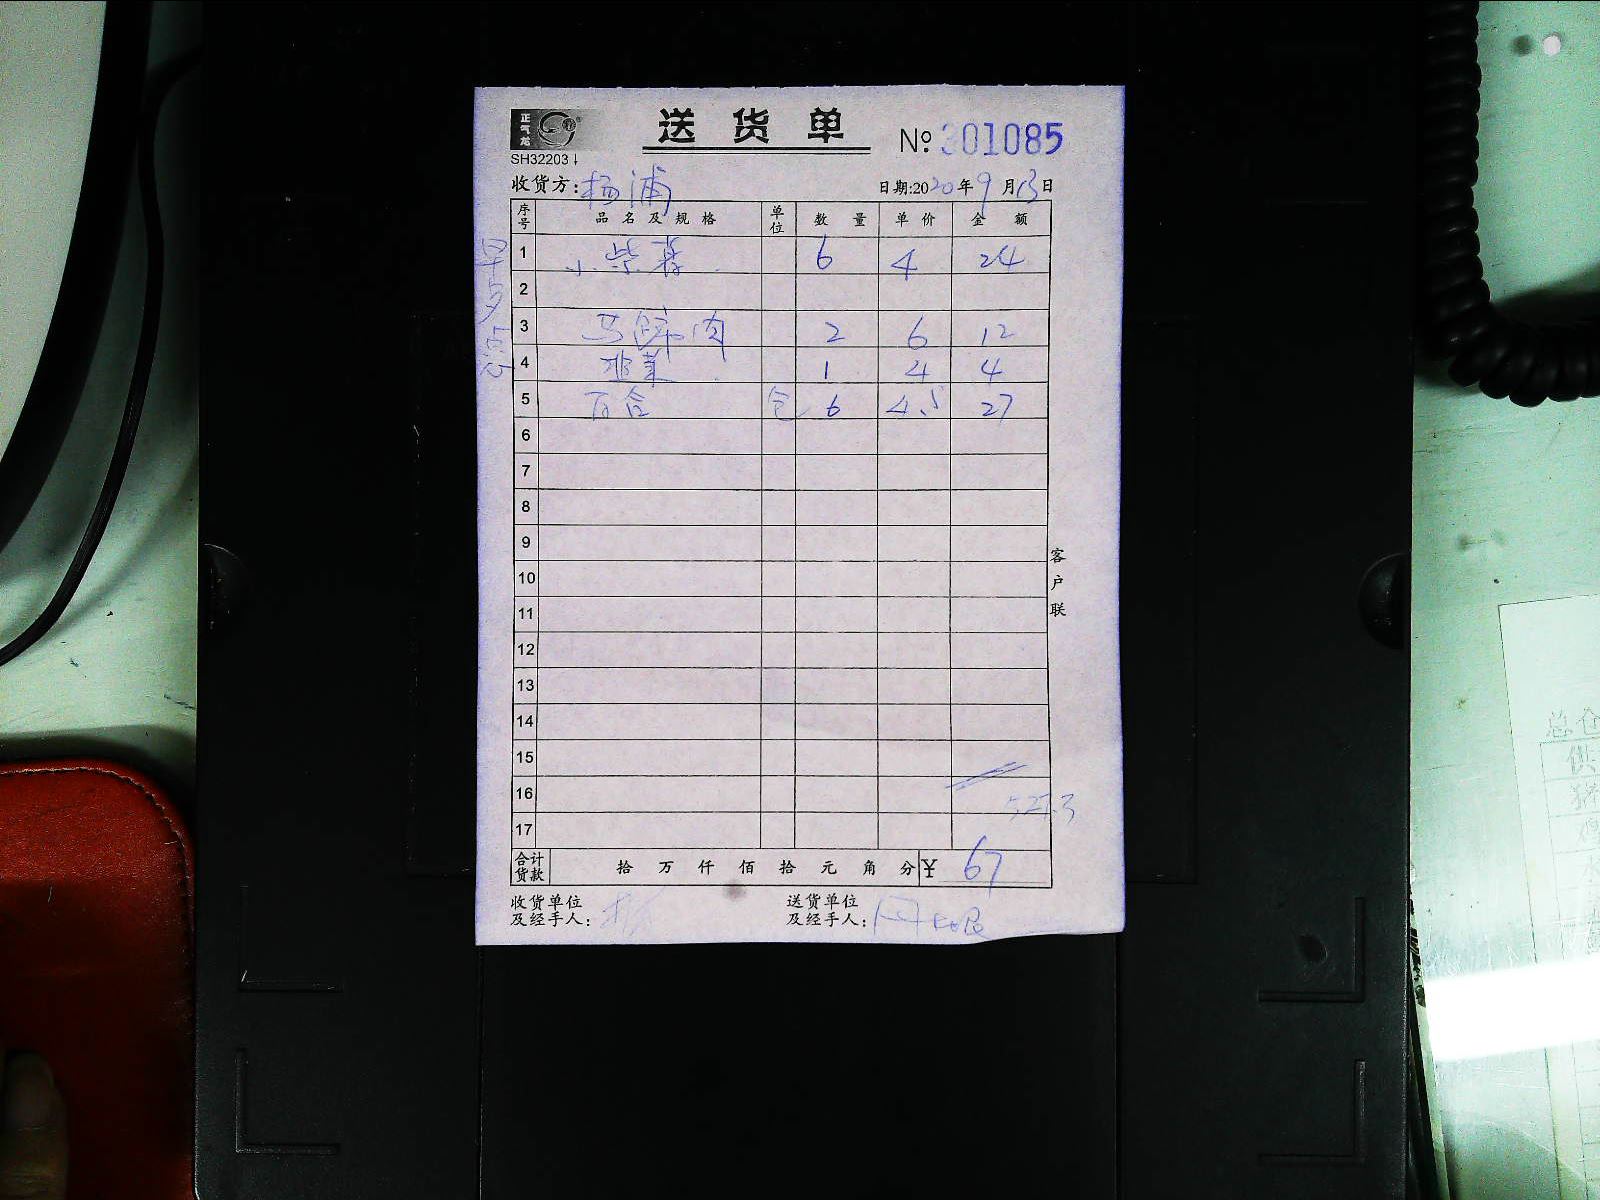 正气龙
送货单
№ 301085
SH32203
收货方: 杨浦
日期:2020年9月13日
序号 品名及规格 单位 数量 单价 金额
1 小紫 6 4 24
2
3 马蹄肉 2 6 12
4 韭菜 1 4 4
5 百合 包 6 4.5 27
6
7
8
9
10
11
12
13
14
15
16
17
合计货款 拾 万 仟 佰 拾 元 角 分 ¥ 67
收货单位
及经手人:
送货单位
及经手人:
客户联
早点
总仓
供